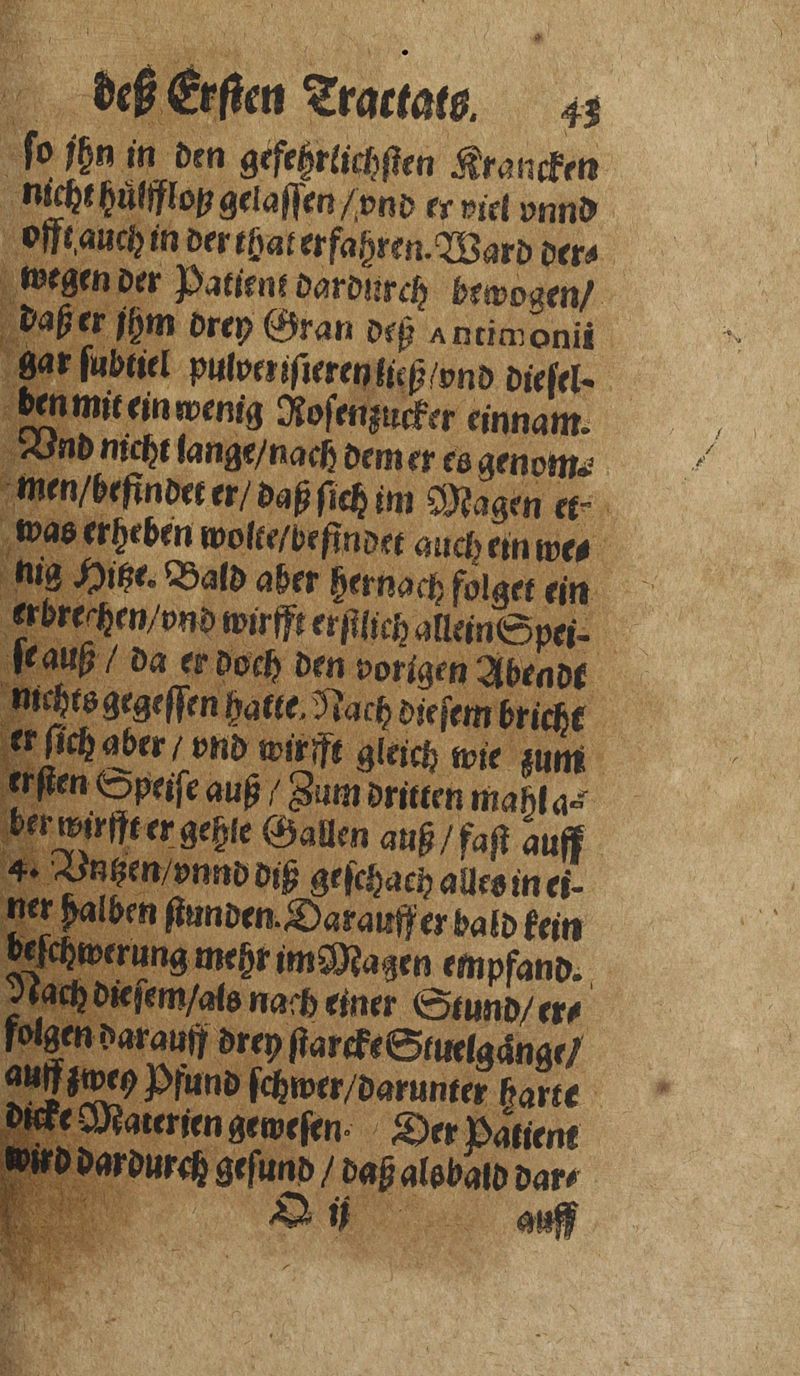 deß Ersten Tractats. 43
so jhn in den gefehrlichsten Krancken
nicht hülfflosz gelassen / vnd er viel vnnd
offt, auch in der that erfahren. Ward der⸗
wegen der Patient dardurch bewogen/
daß er jhm drey Gran deß Antimonii
gar subtiel pulverisieren ließ / vnd diesel-
ben mit ein wenig Rosenzucker einnam.
Vnd nicht lange / nach dem er es genom⸗
men / befindet er / daß sich im Magen et-
was erheben wolte / befindet auch ein we⸗
nig Hitze. Bald aber hernach folget ein
erbrechen / vnd wirfft erstlich allein Spei-
se auß / da er doch den vorigen Abendt
nichts gegessen hatte. Nach diesem bricht
er sich aber / vnd wirfft gleich wie zum
ersten Speise auß / Zum dritten mahl a⸗
ber wirfft er gehle Gallen auß / fast auff
4. Vntzen / vnnd diß geschach alles in ei-
ner halben stunden. Darauff er bald kein
beschwerung mehr im Magen empfand.
Nach diesem / als nach einer Stund / er⸗
folgen darauff drey starcke Stuelgänge /
auff zwey Pfund schwer / darunter harte
dicke Materien gewesen. Der Patient
wird dardurch gesund / daß alsbald dar⸗
D ij auff